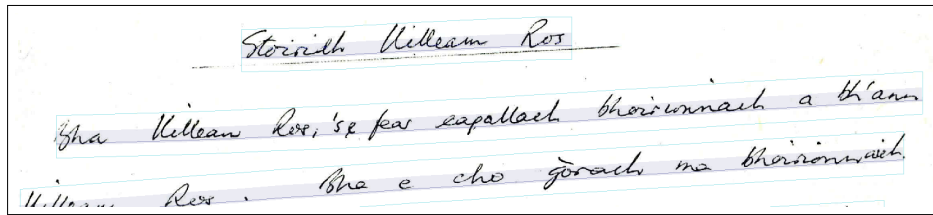 Stoiridh Uilleam Ros
Bha Uilleam Ros, 's e fear eagallach bhoirionnach a bh'ann
Uilleam Ros. Bha e cho gòrach ma bhoirionnaich